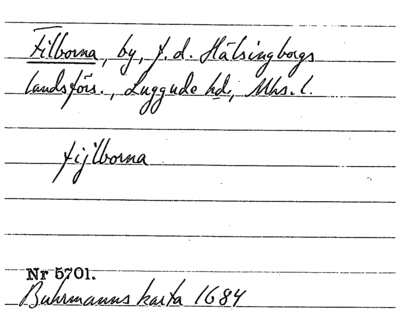 Filborna, by, f. d. Hälsingborgs
landsförs., Luggude hd., Mhs. l.
fijlborna
Nr 5701.
Buhrmanns karta 1684